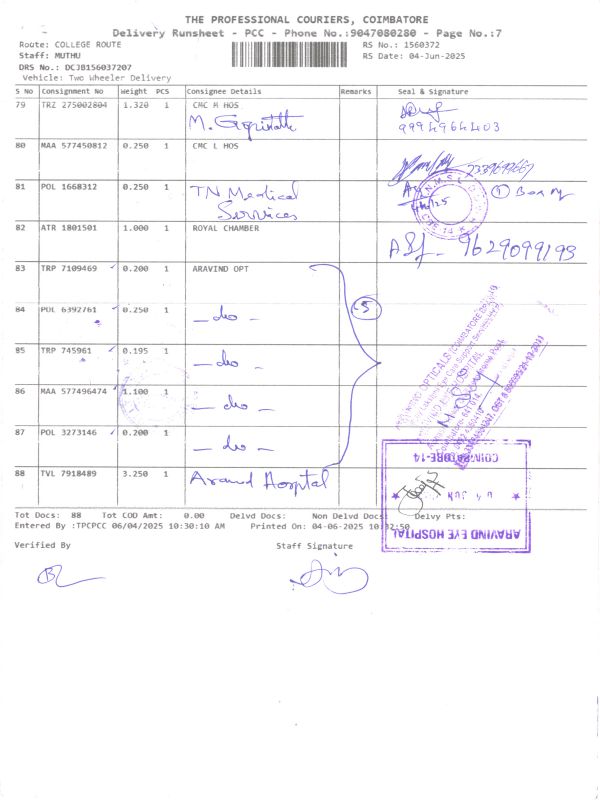 THE PROFESSIONAL COURIERS, COIMBATORE
Delivery Runsheet - PCC - Phone No.:9047080280 - Page No.:7
Route: COLLEGE ROUTE RS No.: 1560372
Staff: MUTHU RS Date: 04-Jun-2025
DRS No.: DCJB156037207
Vehicle: Two Wheeler Delivery
S No Consignment No Weight PCS Consignee Details Remarks Seal & Signature
79 TRZ 275002804 1.320 1 CMC M HOS
M. Gopinath 9994964403
80 MAA 577450812 0.250 1 CMC L HOS
81 POL 1668312 0.250 1 TN Medical Services 1 Box
82 ATR 1801501 1.000 1 ROYAL CHAMBER
9629099193
83 TRP 7109469 0.200 1 ARAVIND OPT
84 POL 6392761 0.250 1 - do - 5
85 TRP 745961 0.195 1 - do -
86 MAA 577496474 1.100 1 - do -
87 POL 3273146 0.200 1 - do -
88 TVL 7918489 3.250 1 Aravind Hospital
COIMBATORE-14
ARAVIND EYE HOSPITAL
Tot Docs: 88 Tot COD Amt: 0.00 Delvd Docs: Non Delvd Docs: Delvy Pts:
Entered By :TPCPCC 06/04/2025 10:30:10 AM Printed On: 04-06-2025 10:32:50
Verified By Staff Signature